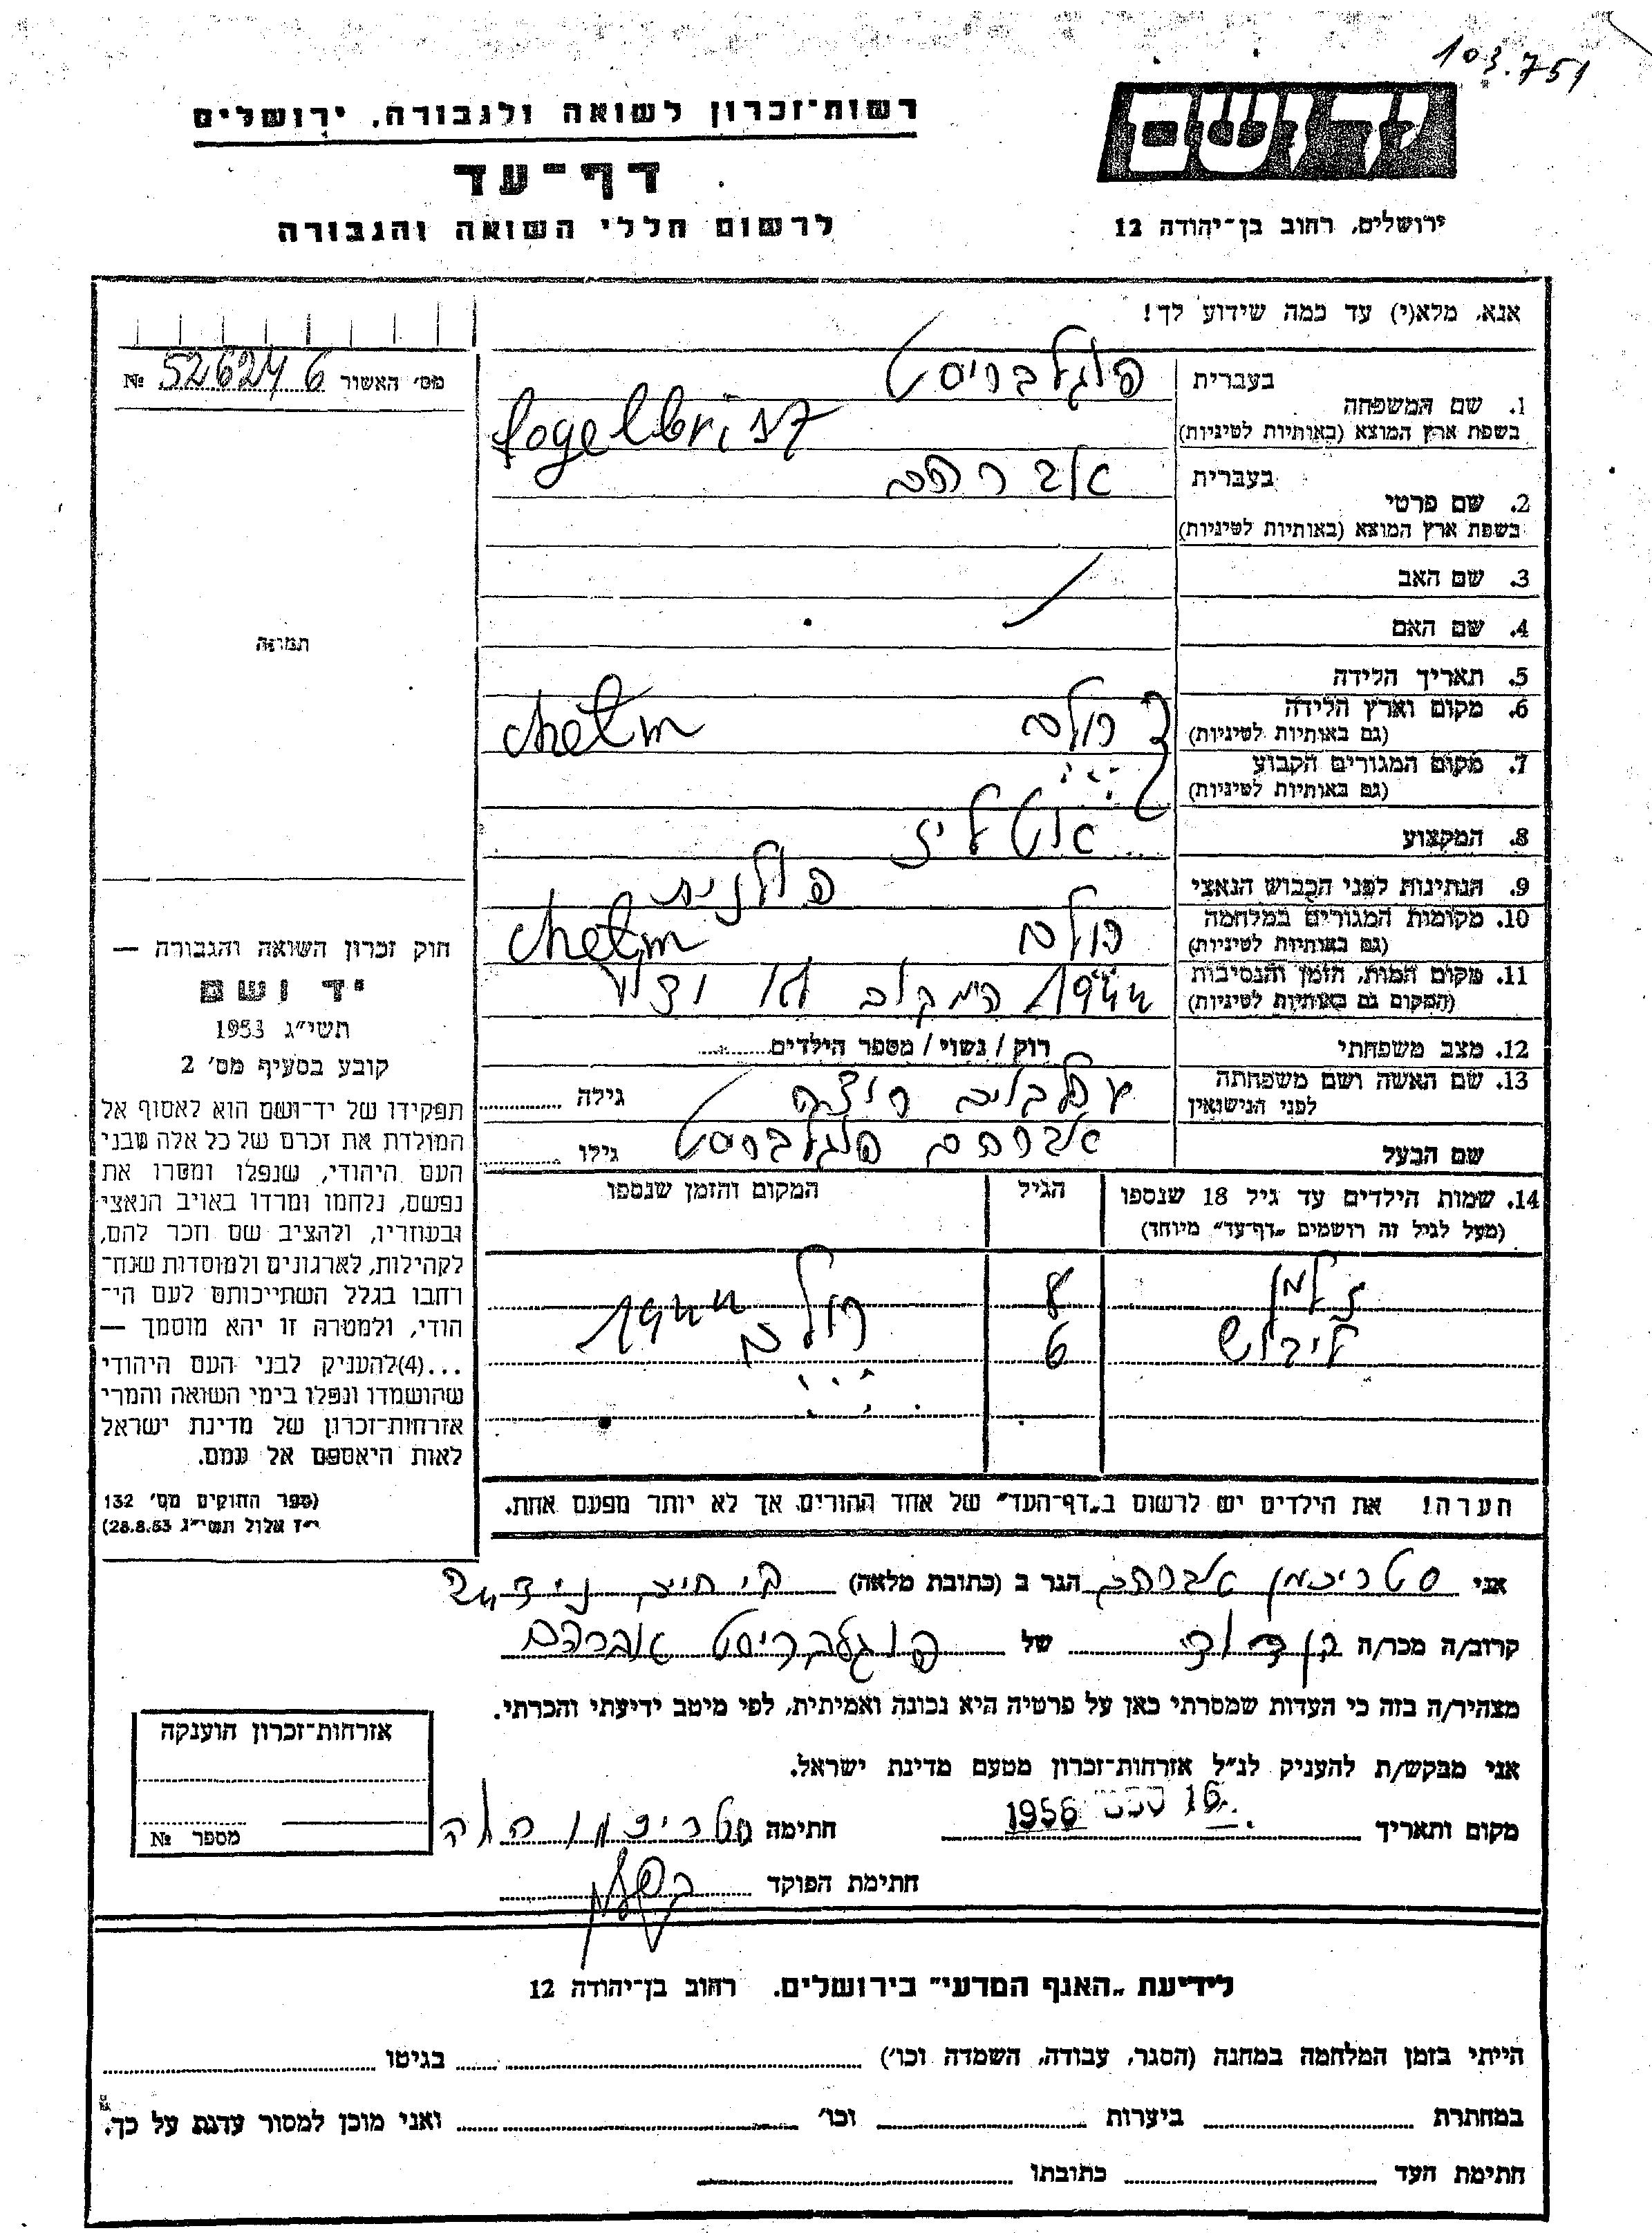 103.751
יד ושם
רשות־זכרון לשואה ולגבורה, ירושלים
דף־עד
לרשום חללי השואה והגבורה
ירושלים, רחוב בן־יהודה 12
אנא, מלא(י) עד כמה שידוע לך!
מס׳ האשור 526246 №
1. שם המשפחה
בעברית פוגלבריסט
בשפת ארץ המוצא (באותיות לטיניות) fogelbrist
2. שם פרטי
בעברית אברהם
בשפת ארץ המוצא (באותיות לטיניות)
3. שם האב
4. שם האם
תמונה
5. תאריך הלידה
6. מקום וארץ הלידה
(גם באותיות לטיניות) חולם chełm
7. מקום המגורים הקבוע
(גם באותיות לטיניות)
8. המקצוע אטליז
9. הנתינות לפני הכבוש הנאצי פולנית
10. מקומות המגורים במלחמה
(גם באותיות לטיניות) חולם chełm
11. מקום המות, הזמן והנסיבות
(המקום גם באותיות לטיניות) המקום לא ידוע
12. מצב משפחתי רוק / נשוי / מספר הילדים
13. שם האשה ושם משפחתה
לפני הנישואין גילה
שם הבעל אברהם פוגלבריסט גילו
14. שמות הילדים עד גיל 18 שנספו
(מעל לגיל זה רושמים „דף־עד” מיוחד)
הגיל
המקום והזמן שנספו
זלמן 8 חולם
לייבוש 6
הערה! את הילדים יש לרשום ב„דף־העד” של אחד ההורים אך לא יותר מפעם אחת.
חוק זכרון השואה והגבורה —
יד ושם
תשי״ג 1953
קובע בסעיף מס׳ 2
תפקידו של יד־ושם הוא לאסוף אל
המולדת את זכרם של כל אלה שבני
העם היהודי, שנפלו ומסרו את
נפשם, נלחמו ומרדו באויב הנאצי
ובעוזריו, ולהציב שם וזכר להם,
לקהילות, לארגונים ולמוסדות שנח־
רחבו בגלל השתייכותם לעם הי־
הודי, ולמטרה זו יהא מוסמך —
...(4)להעניק לבני העם היהודי
שהושמדו ונפלו בימי השואה והמרי
אזרחות־זכרון של מדינת ישראל
לאות היאספם אל עמם.
(ספר החוקים מס׳ 132
י״ז אלול תשי״ג 28.8.53)
אני סטריכמן אברהם הגר ב (כתובת מלאה)
קרוב/ה מכר/ה בן דוד של פוגלבריסט אברהם
מצהיר/ה בזה כי העדות שמסרתי כאן על פרטיה היא נכונה ואמיתית, לפי מיטב ידיעתי והכרתי.
אני מבקש/ת להעניק לנ״ל אזרחות־זכרון מטעם מדינת ישראל.
מקום ותאריך 16 1956 חתימה
חתימת הפוקד
אזרחות־זכרון הוענקה
מספר №
לידיעת „האגף המדעי” בירושלים. רחוב בן־יהודה 12
הייתי בזמן המלחמה במחנה (הסגר, עבודה, השמדה וכו׳) בגיטו
במחתרת ביערות וכו׳ ואני מוכן למסור עדות על כך.
חתימת העד כתובתו